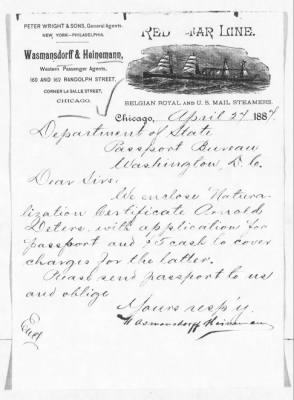 PETER WRIGHT & SONS, General Agents.
NEW YORK—PHILADELPHIA.
RED STAR LINE.
Wasmansdorff & Heinemann,
Western Passenger Agents,
160 AND 162 RANDOLPH STREET,
CORNER LA SALLE STREET,
CHICAGO.
BELGIAN ROYAL AND U.S. MAIL STEAMERS.
Chicago, April 24 1884.
Department of State
Passport Bureau
Washington, D. C.
Dear Sirs:
We enclose Natura-
lization Certificate Arnold
Deters, with application for
passport and $5 cash to cover
charges for the latter.
Please send passport to us
and oblige
Yours resp'y.
Wasmansdorff Heineman
Encl